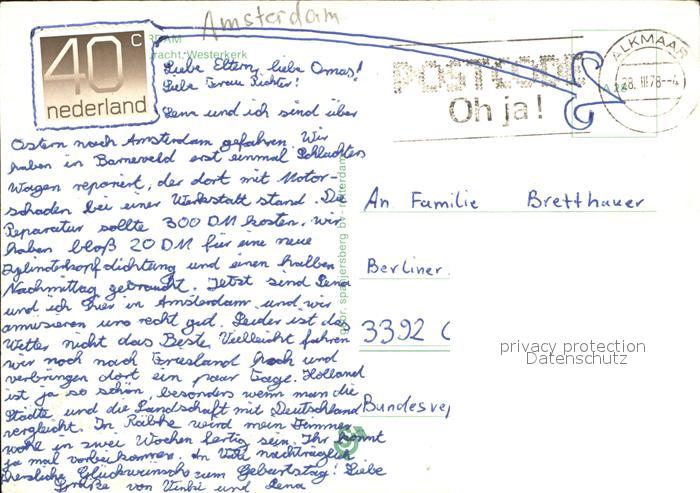 Amsterdam
40 c
nederland
Westerkerk
Liebe Eltern, liebe Omas!
Liebe Frau Richter!
Lena und ich sind über
Ostern nach Amsterdam gefahren. Wir
haben in Barneveld erst einmal Schlachters
Wagen repariert, der dort mit Motor-
schaden bei einer Werkstatt stand. Die
Reparatur sollte 300 DM kosten. Wir
haben bloß 20 DM für eine neue
Zylinderkopfdichtung und einen halben
Nachmittag gebraucht. Jetzt sind Lena
und ich hier in Amsterdam und wir
amüsieren uns recht gut. Leider ist das
Wetter nicht das Beste. Vielleicht fahren
wir noch nach Friesland hoch und
verbringen dort ein paar Tage. Holland
ist ja so schön, besonders wenn man die
Städte und die Landschaft mit Deutschland
vergleicht. In Räbke wird mein Zimmer
wohl in zwei Wochen fertig sein. Ihr könnt
ja mal vorbei kommen. An Vati nachträglich
herzliche Glückwünsche zum Geburtstag! Liebe
Grüße von und Lena
POSTCODE
Oh ja!
ALKMAAR
28. III 78--4
An Familie Bretthauer
Berliner
3392 C
Bundesrep
privacy protection
Datenschutz